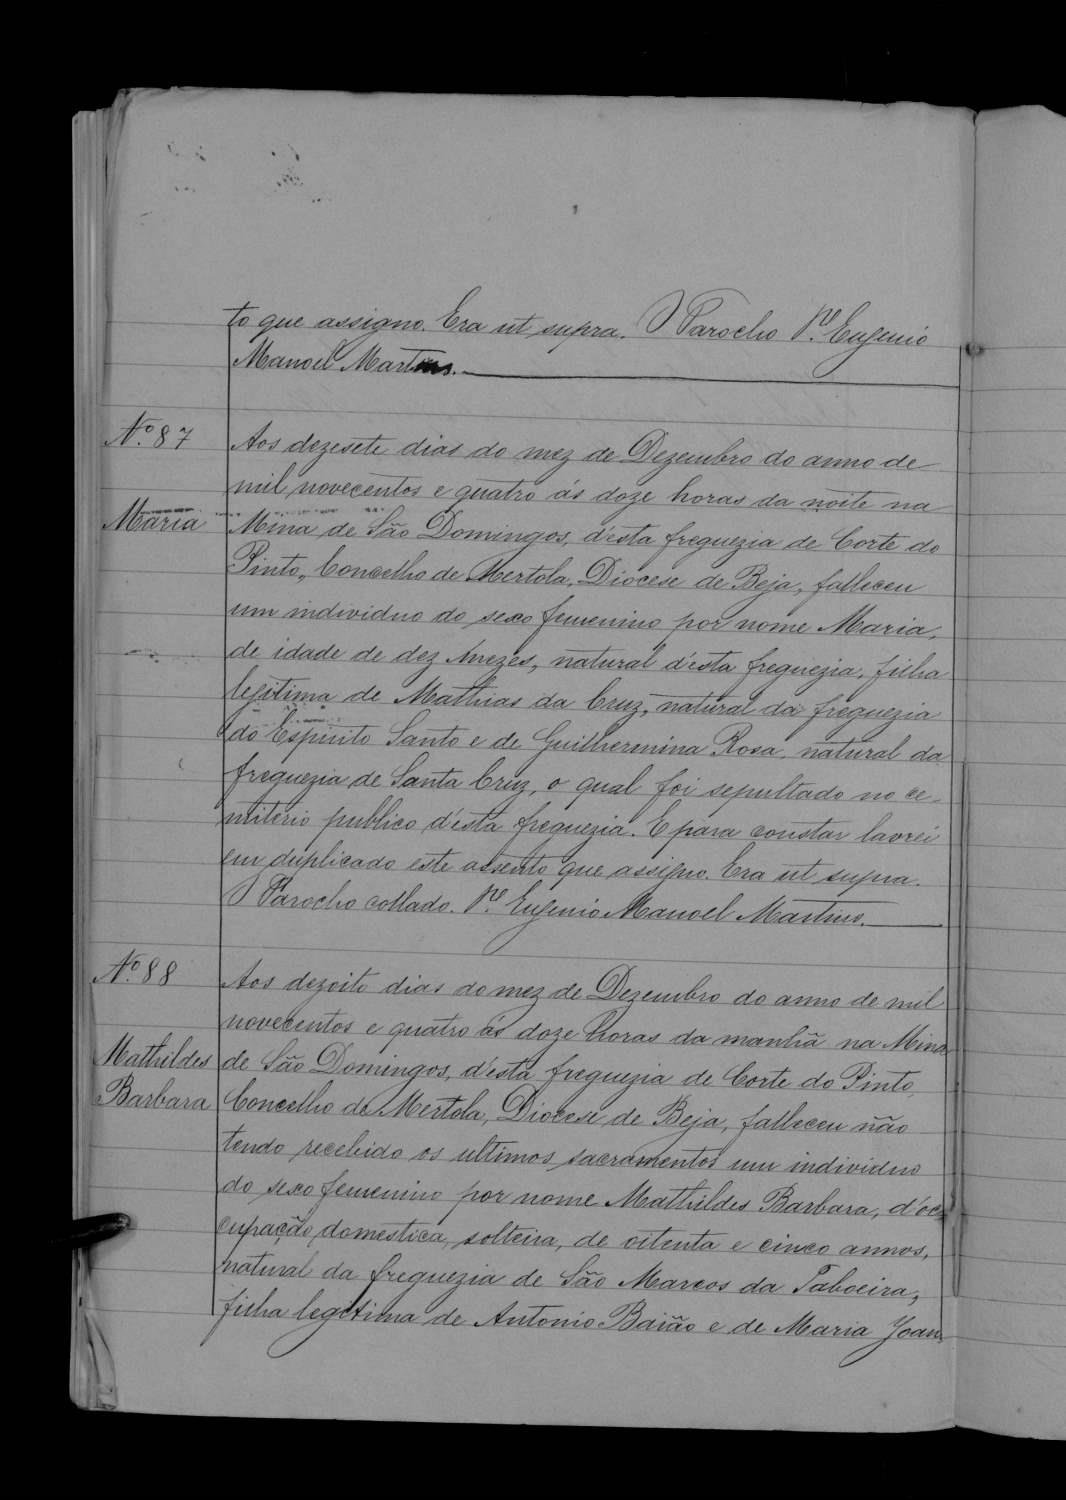 to que assigno. Era ut supra. O Parocho P.e Eugenio
Manoel Martins.
N.o 87
Aos dezesete dias do mez de Dezembro do anno de
mil novecentos e quatro ás doze horas da noite na
Maria
Mina de São Domingos, d'esta freguezia de Corte do
Pinto, Concelho de Mertola, Diocese de Beja, falleceu
um individuo do sexo femenino por nome Maria,
de idade de dez mezes, natural d'esta freguezia, filha
legitima de Mathias da Cruz, natural da freguezia
do Espirito Santo e de Guilhermina Rosa, natural da
freguezia de Santa Cruz, o qual foi sepultado no ce-
miterio publico d'esta freguezia. E para constar lavrei
em duplicado este assento que assigno. Era ut supra.
O Parocho collado. P.e Eugenio Manoel Martins.
N.o 88
Aos dezoito dias do mez de Dezembro do anno de mil
novecentos e quatro ás doze horas da manhã na Mina
Mathildes
de São Domingos, d'esta freguezia de Corte do Pinto,
Barbara
Concelho de Mertola, Diocese de Beja, falleceu não
tendo recebido os ultimos sacramentos um individuo
do sexo femenino por nome Mathildes Barbara, d'oc-
cupação domestica, solteira, de oitenta e cinco annos,
natural da freguezia de São Marcos da Taboeira,
filha legitima de Antonio Baião e de Maria Joan-